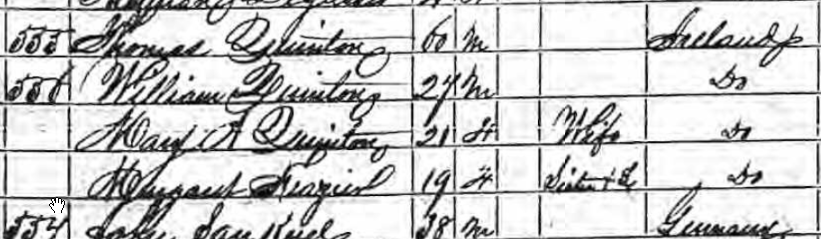 555 Thomas Quinton 60 M Ireland
556 William Quinton 27 M Do
Mary A Quinton 21 F Wife Do
Margaret 19 F Do
John 38 M Germany